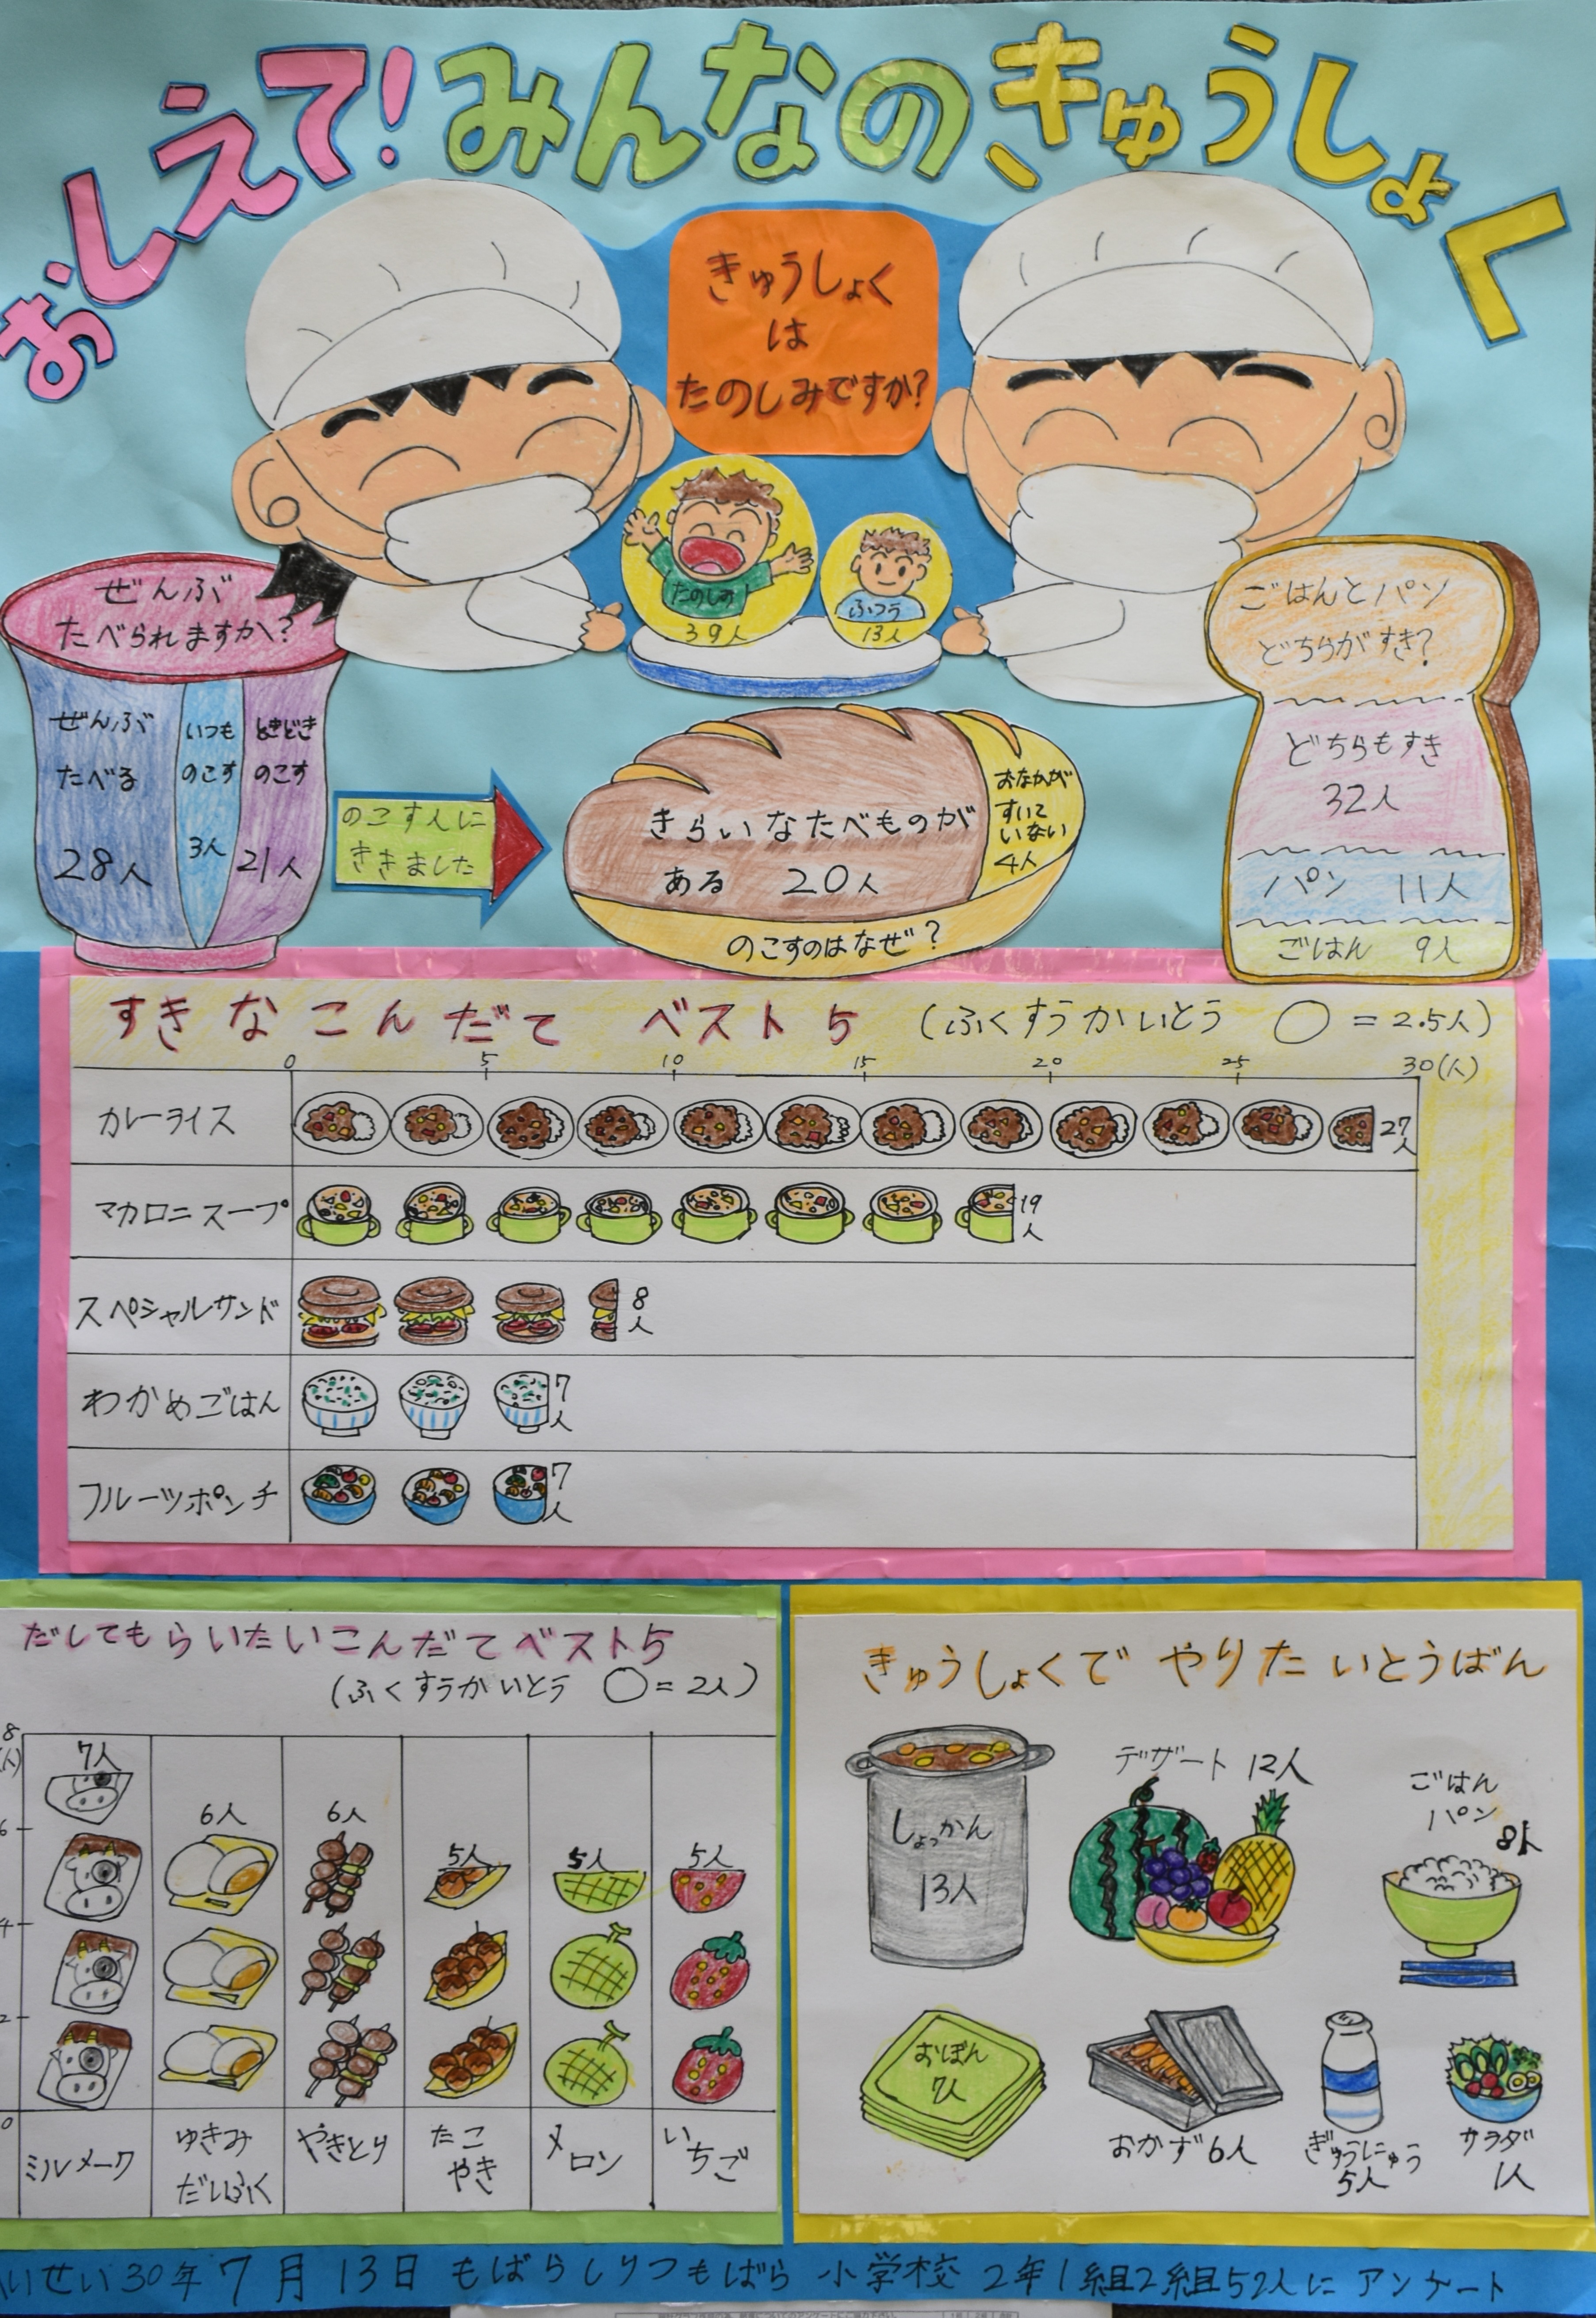 おしえて!みんなのきゅうしょく
きゅうしょく
は
たのしみですか?
たのしみ
39人
ふつう
13人
ぜんぶ
たべられますか?
ぜんぶ
たべる
28人
いつも
のこす
3人
ときどき
のこす
21人
のこす人に
ききました
きらいなたべものが
ある 20人
おなかが
すいて
いない
4人
のこすのはなぜ?
ごはんとパン
どちらがすき?
どちらもすき
32人
パン 11人
ごはん 9人
すきなこんだて ベスト5 (ふくすうかいとう ○=2.5人)
0 5 10 15 20 25 30(人)
カレーライス 27人
マカロニスープ 19人
スペシャルサンド 8人
わかめごはん 7人
フルーツポンチ 7人
だしてもらいたいこんだてベスト5
(ふくすうかいとう ○=2人)
8
(人)
6
4
2
0
7人
6人
6人
5人
5人
5人
ミルメーク
ゆきみ
だいふく
やきとり
たこ
やき
メロン
いちご
きゅうしょくで やりたいとうばん
しょっかん
13人
デザート 12人
ごはん
パン
8人
おぼん
7人
おかず6人
ぎゅうにゅう
5人
サラダ
1人
いせい30年7月13日 もばらしりつもばら 小学校 2年1組2組52人に アンケート